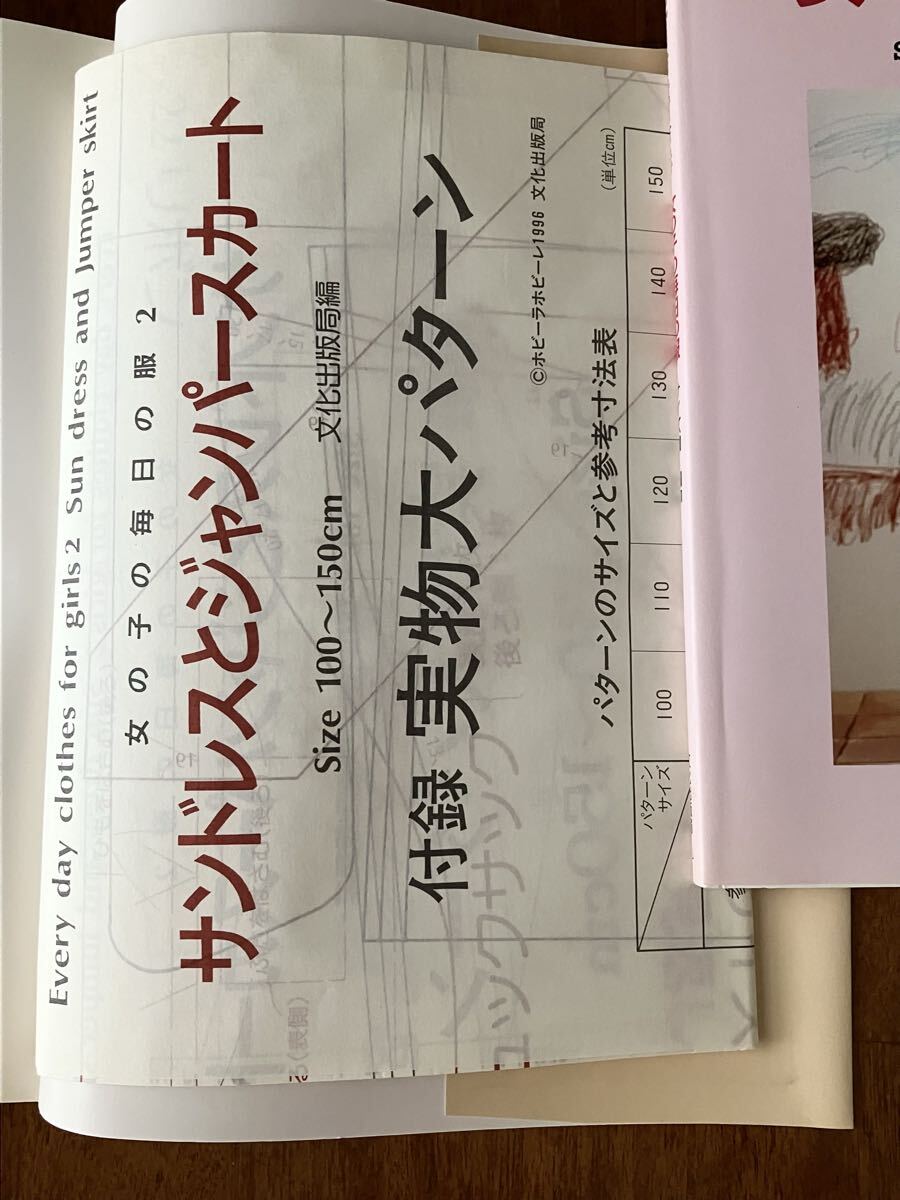 Every day clothes for girls 2 Sun dress and Jumper skirt
女の子の毎日の服 2
サンドレスとジャンパースカート
Size 100〜150cm 文化出版局編
付録 実物大パターン
©ホビーラホビーレ1996 文化出版局
パターンのサイズと参考寸法表 (単位cm)
パターンサイズ 100 110 120 130 140 150
(表側)